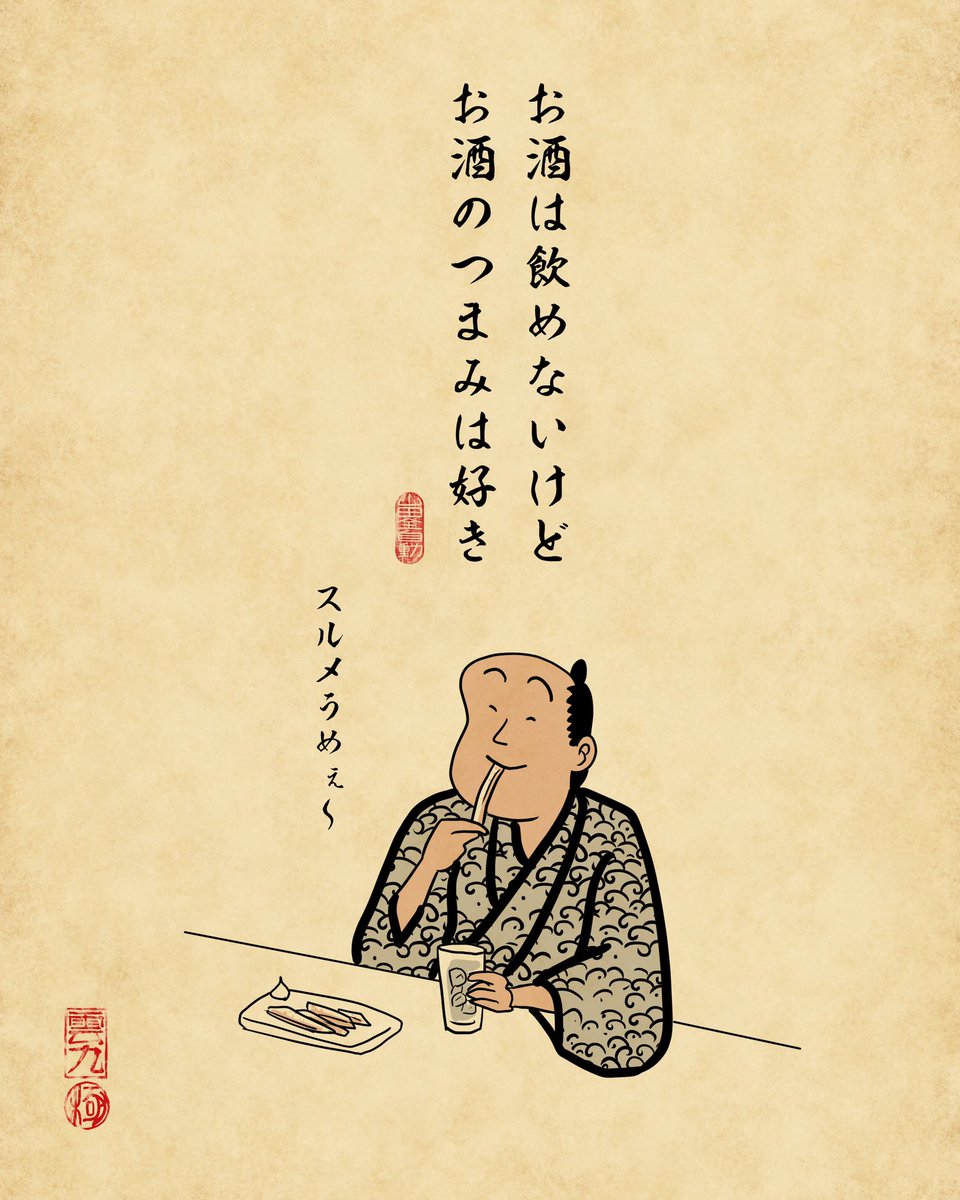 お酒は飲めないけど
お酒のつまみは好き
スルメうめぇ〜